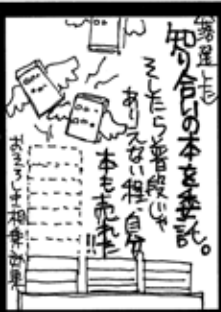 落選した
知り合いの本を委託。
そしたら普段じゃ
ありえない程自分
本も売れた!!
おそろしき相乗効果